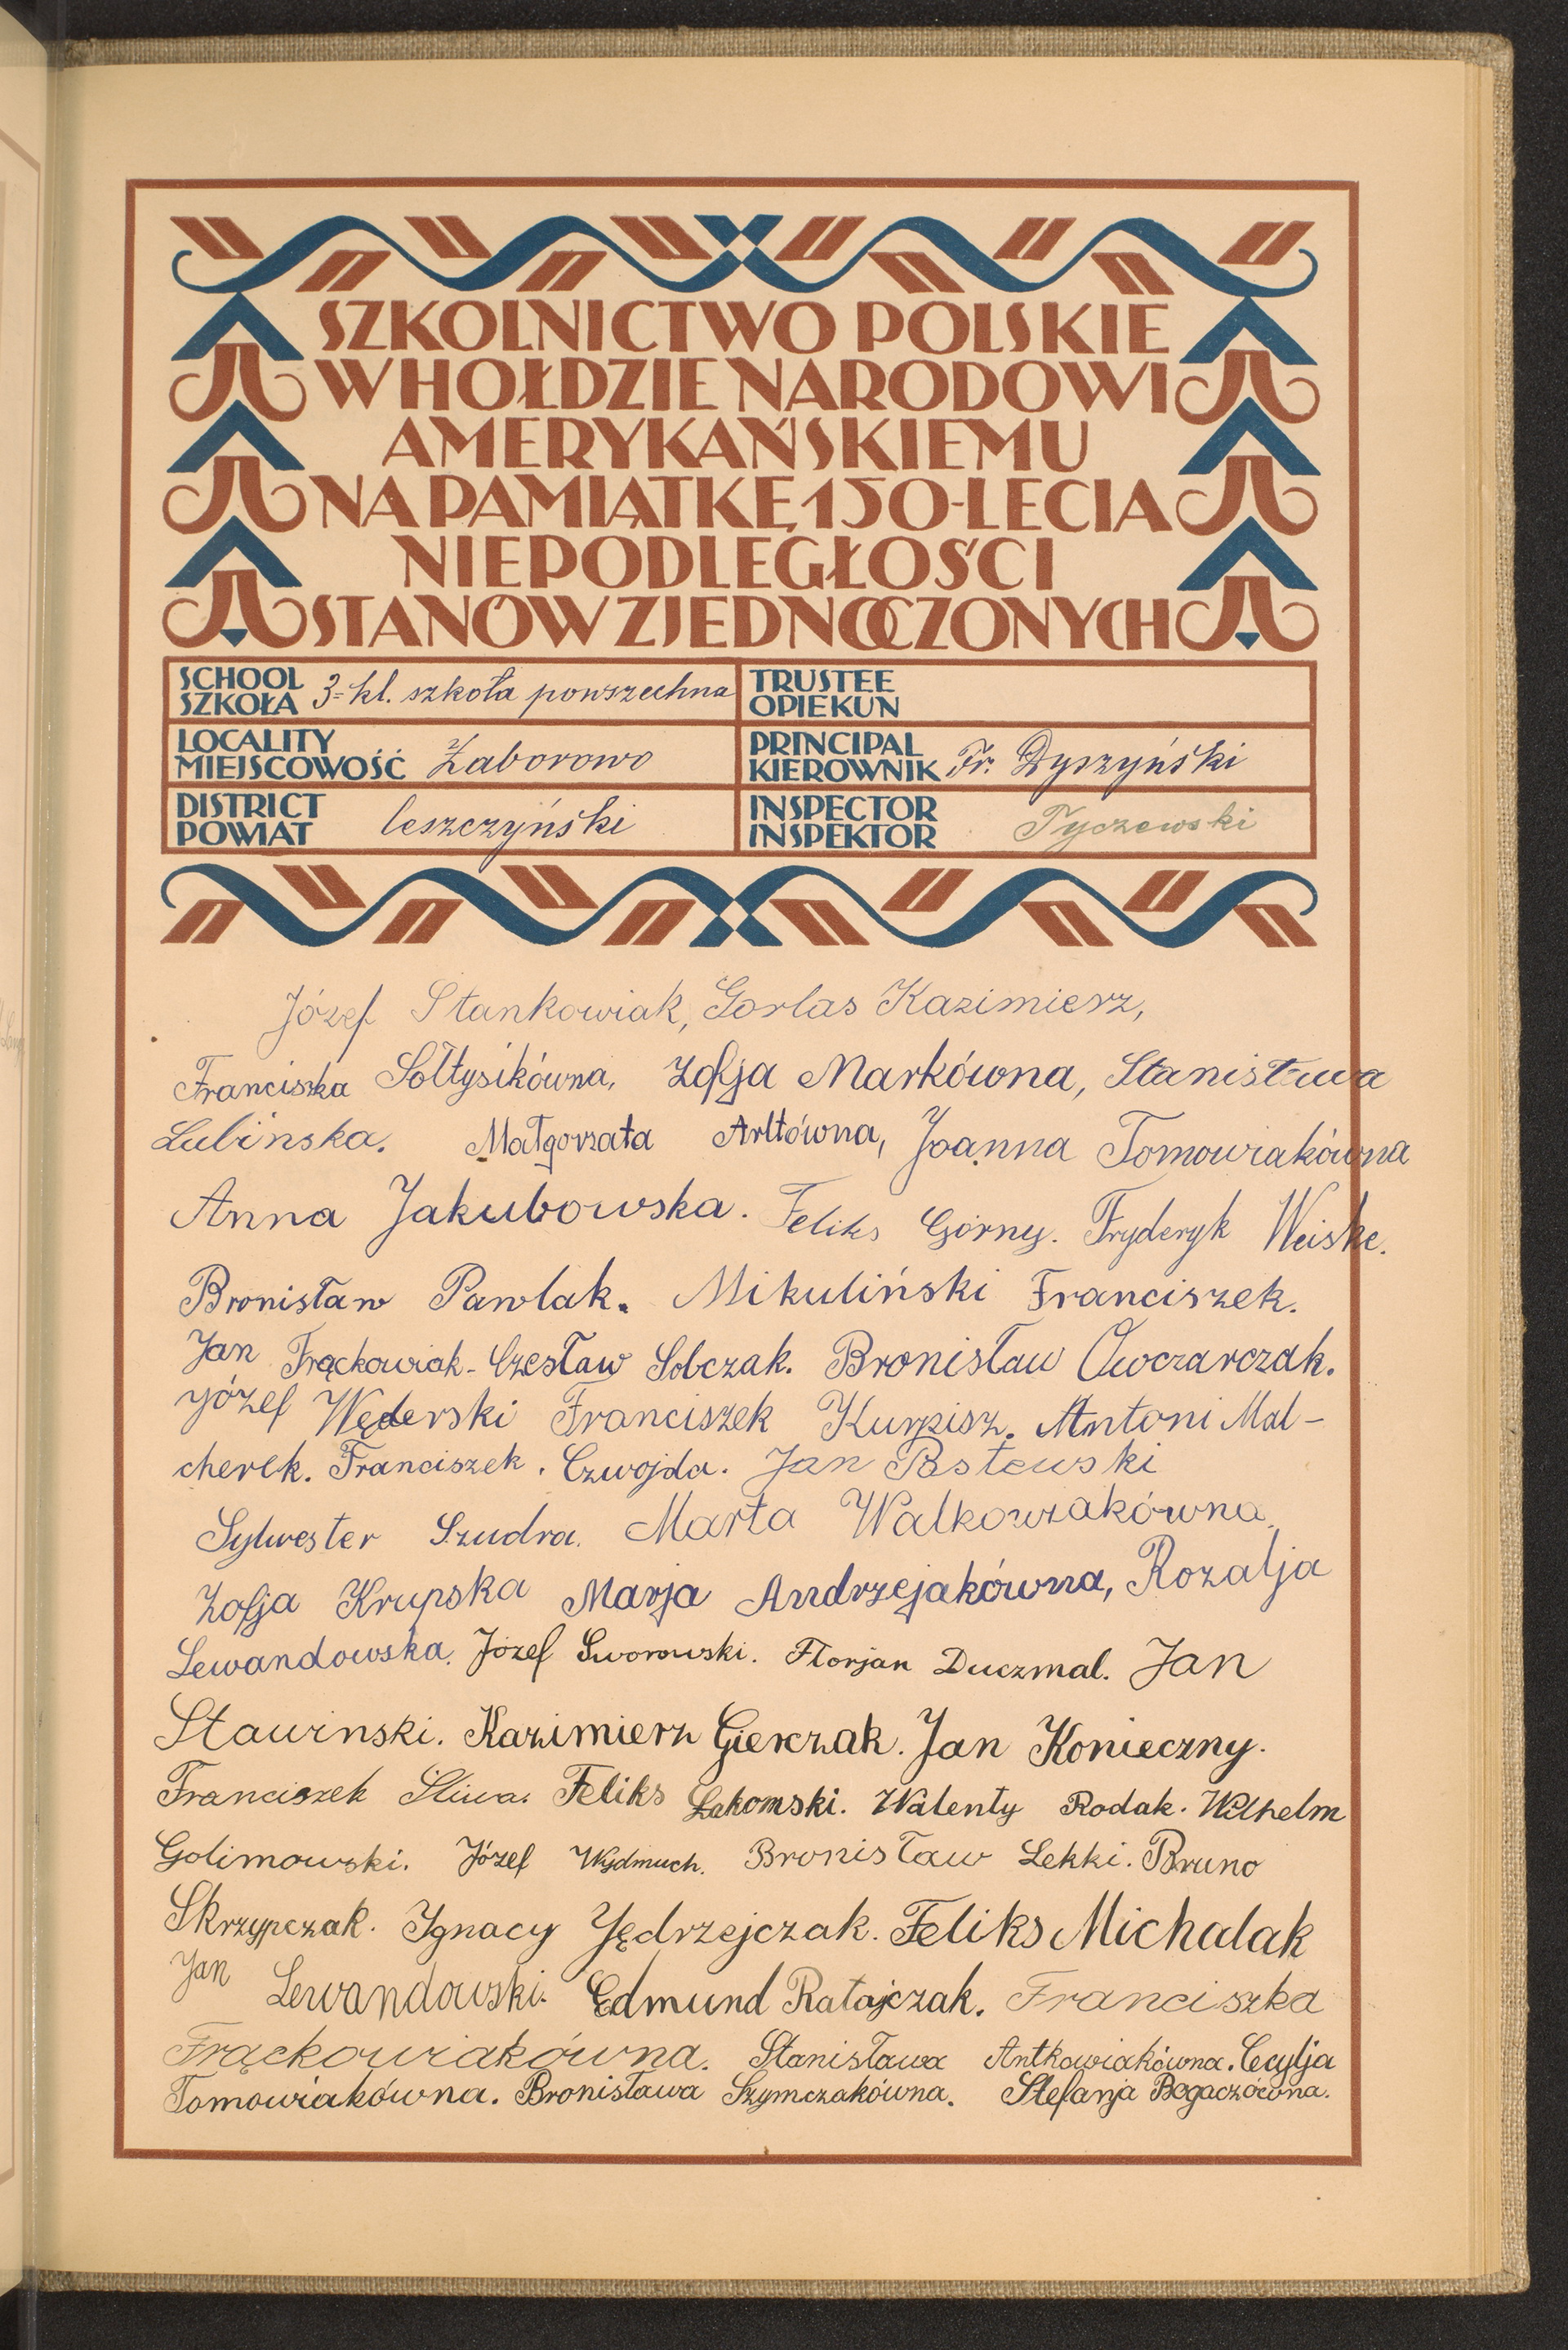 SZKOLNICTWO POLSKIE
W HOŁDZIE NARODOWI
AMERYKAŃSKIEMU
NA PAMIĄTKĘ 150-LECIA
NIEPODLEGŁOŚCI
STANÓW ZJEDNOCZONYCH
SCHOOL SZKOŁA 3-kl. szkoła powszechna
TRUSTEE OPIEKUN
LOCALITY MIEJSCOWOŚĆ Zaborowo
PRINCIPAL KIEROWNIK Fr. Dyszyński
DISTRICT POWIAT leszczyński
INSPECTOR INSPEKTOR Tyczewski
Józef Stankowiak, Gorlas Kazimierz,
Franciszka Sołtysikówna, Zofja Markówna, Stanisława
Lubinska. Małgorzata Arltówna, Joanna Tomowiakówna
Anna Jakubowska. Feliks Górny. Fryderyk Weiske.
Bronisław Pawlak. Mikuliński Franciszek.
Jan Frąckowiak- Czesław Sobczak. Bronisław Owczarczak.
Józef Węderski Franciszek Kurpisz. Antoni Mal-
cherek. Franciszek. Czwojda. Jan
Sylwester Szudra. Marta Walkowiakówna,
Zofja Krupska Marja Andrzejakówna, Rozalja
Lewandowska. Józef Sworowski. Florjan Duczmal. Jan
Stawinski. Kazimierz Gierczak. Jan Konieczny.
Franciszek Śliwa. Feliks Łakomski. Walenty Rodak. Wilhelm
Golimowski. Józef Wydmuch. Bronisław Lekki. Bruno
Skrzypczak. Ignacy Jędrzejczak. Feliks Michalak
Jan Lewandowski. Edmund Ratajczak. Franciszka
Frąckowiakówna. Stanisława Antkowiakówna. Cecylja
Tomowiakówna. Bronisława Szymczakówna. Stefanja Bogaczówna.